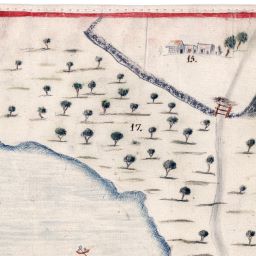 15.
17.